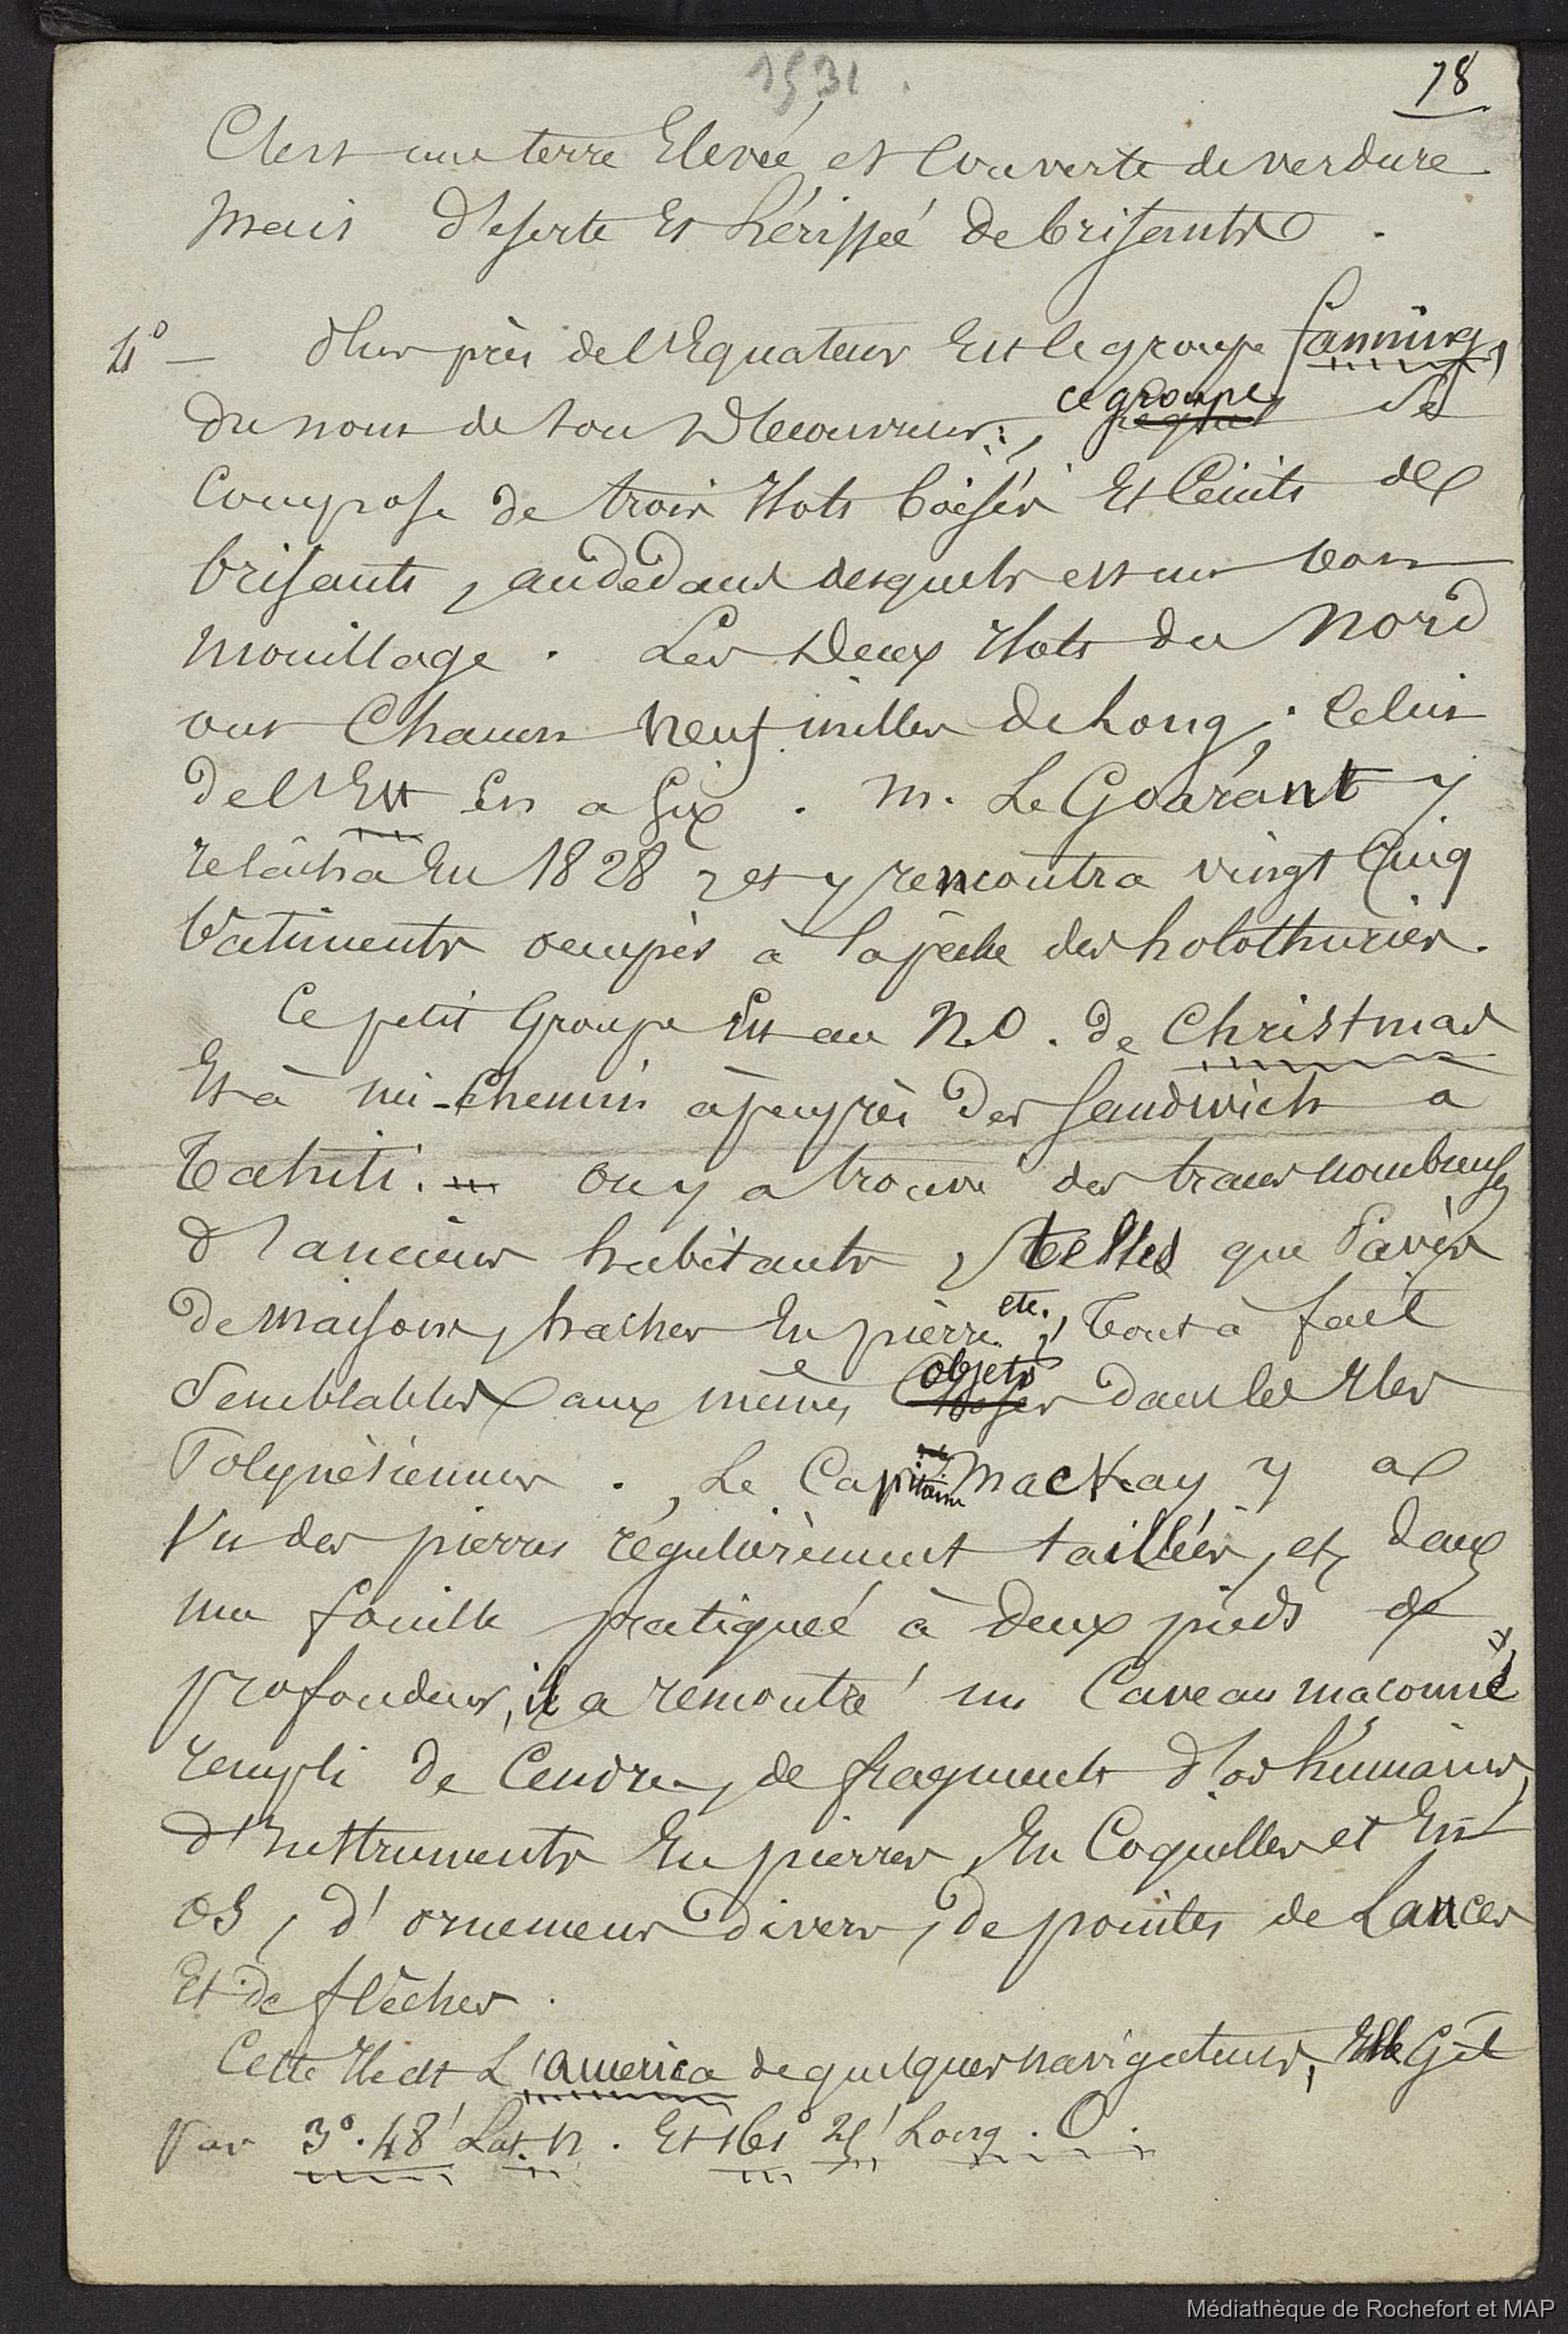 1531.
78
C'est une terre Elevée et Couverte de verdure
mais déserte Et hérissée de brisants.
4° — Plus près de l'Equateur Est le groupe fanning,
du nom de son Découvreur; ce groupe se
Compose de trois Ilots boisés Et Ceints de
brisants, audedans desquels est un bon
mouillage. Les Deux Ilots du Nord
ont Chacun neuf milles de Long; Celui
de l'Est En a Six. M. Le Goarant y
relâcha En 1828, et y rencontra vingt Cinq
batiments occupés à la pêche des holothuries.
Ce petit Groupe Est au N.O. de Christmas
Et à mi-Chemin àpeuprès des Sandwich a
Tahiti. On y a trouvé des traces nombreuses
d'anciens habitants, telles que Pavés
de maisons, haches En pierre etc., Tout à fait
Semblables aux mêmes objets dans les Iles
Polynésiennes. Le Capitaine Mackay y a
Vu des pierres régulièrement taillées, et, dans
une fouille pratiquée à deux pieds de
profondeur, il a rencontré un Caveau maconné
rempli de Cendres, de fragments d'os humains,
d'Instruments En pierres, En Coquilles et En
os, d'ornemens divers, de pointes de Lances
Et de flèches.
Cette Ile est L'america de quelques navigateurs, Elle Gît
Par 3°. 48' Lat. N. Et 161° 25' Long. O.
Médiathèque de Rochefort et MAP